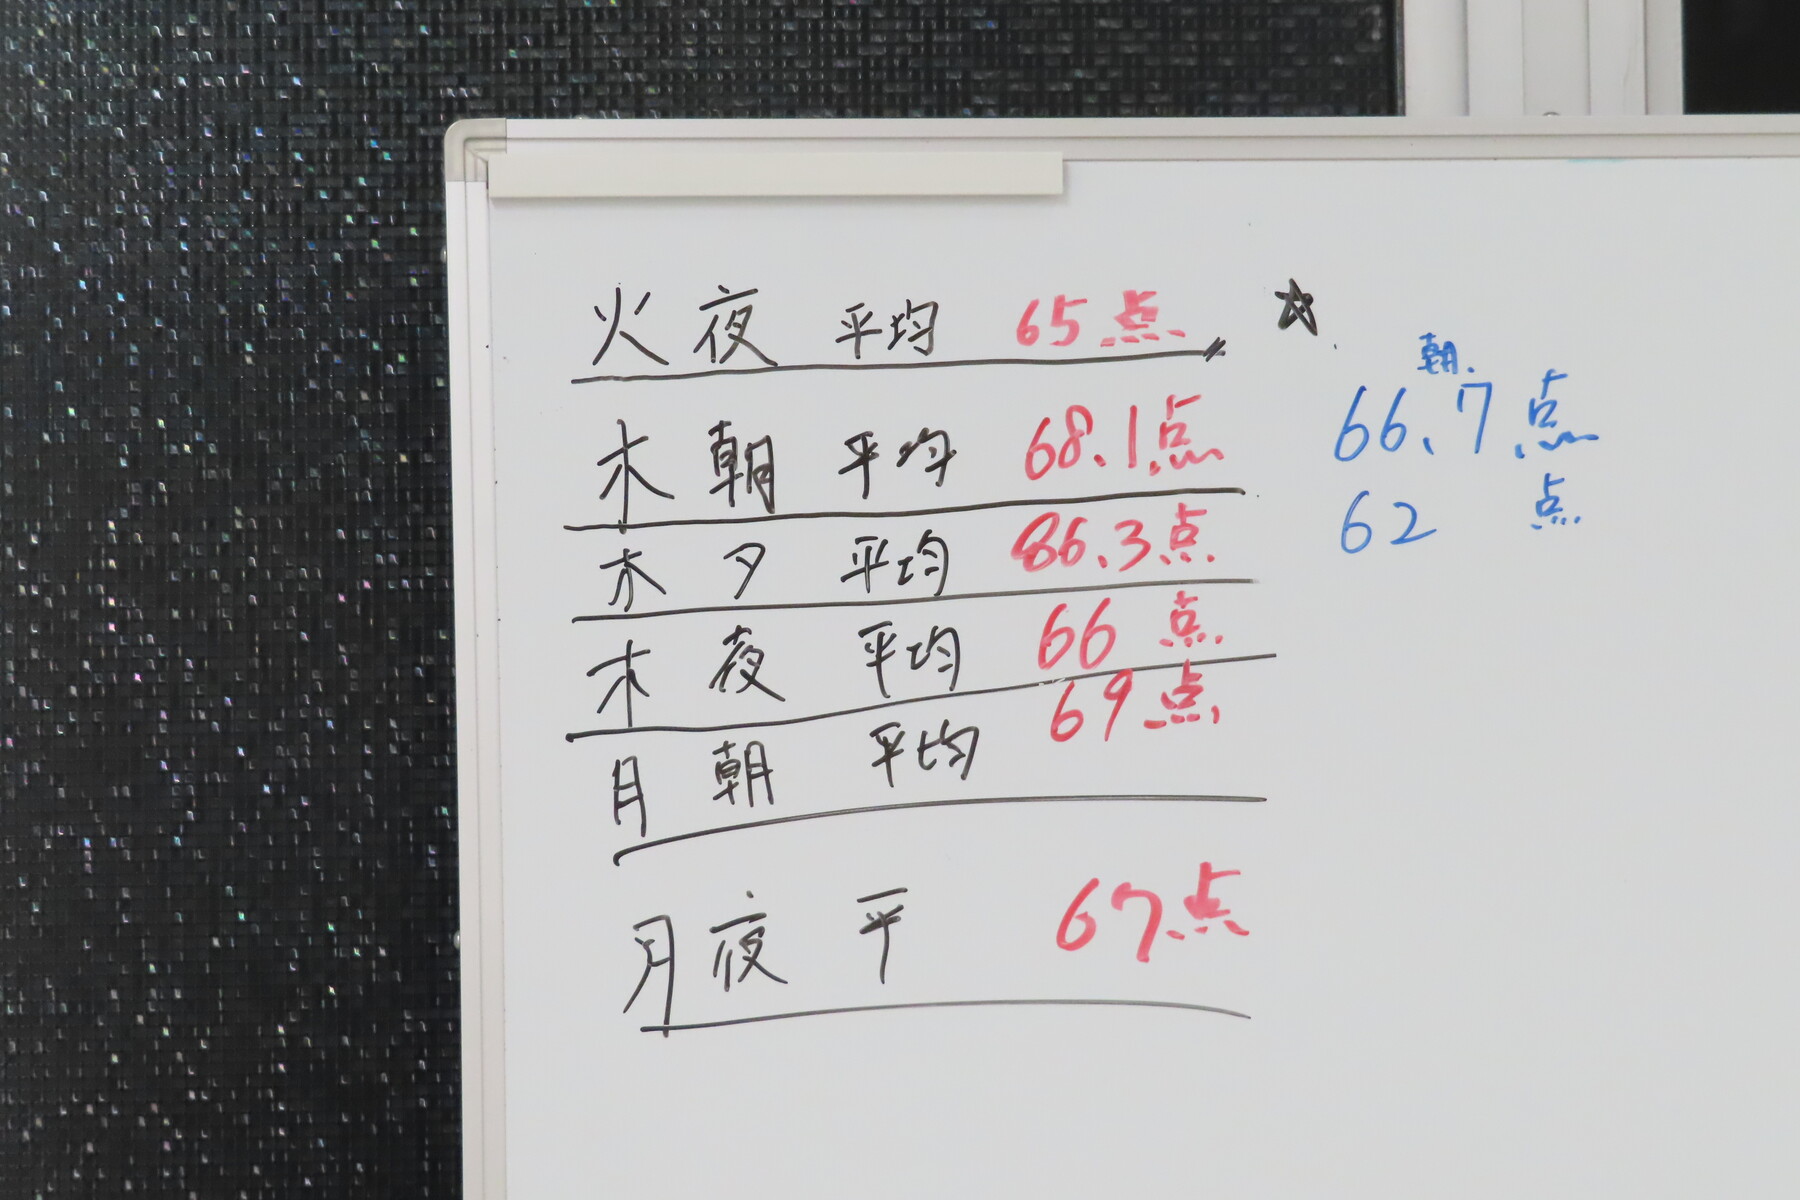 火夜 平均 65点
木朝 平均 68.1点
木夕 平均 86.3点
木夜 平均 66点
月朝 平均 69点
月夜 平 67点
☆
朝.
66.7点
62 点